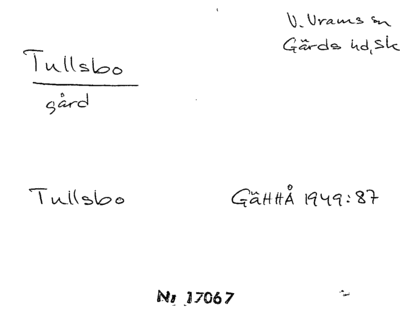 V. Vrams sn
Gärds hd, Sk
Tullsbo
gård
Tullsbo GäHHÅ 1949:87
Nr 17067